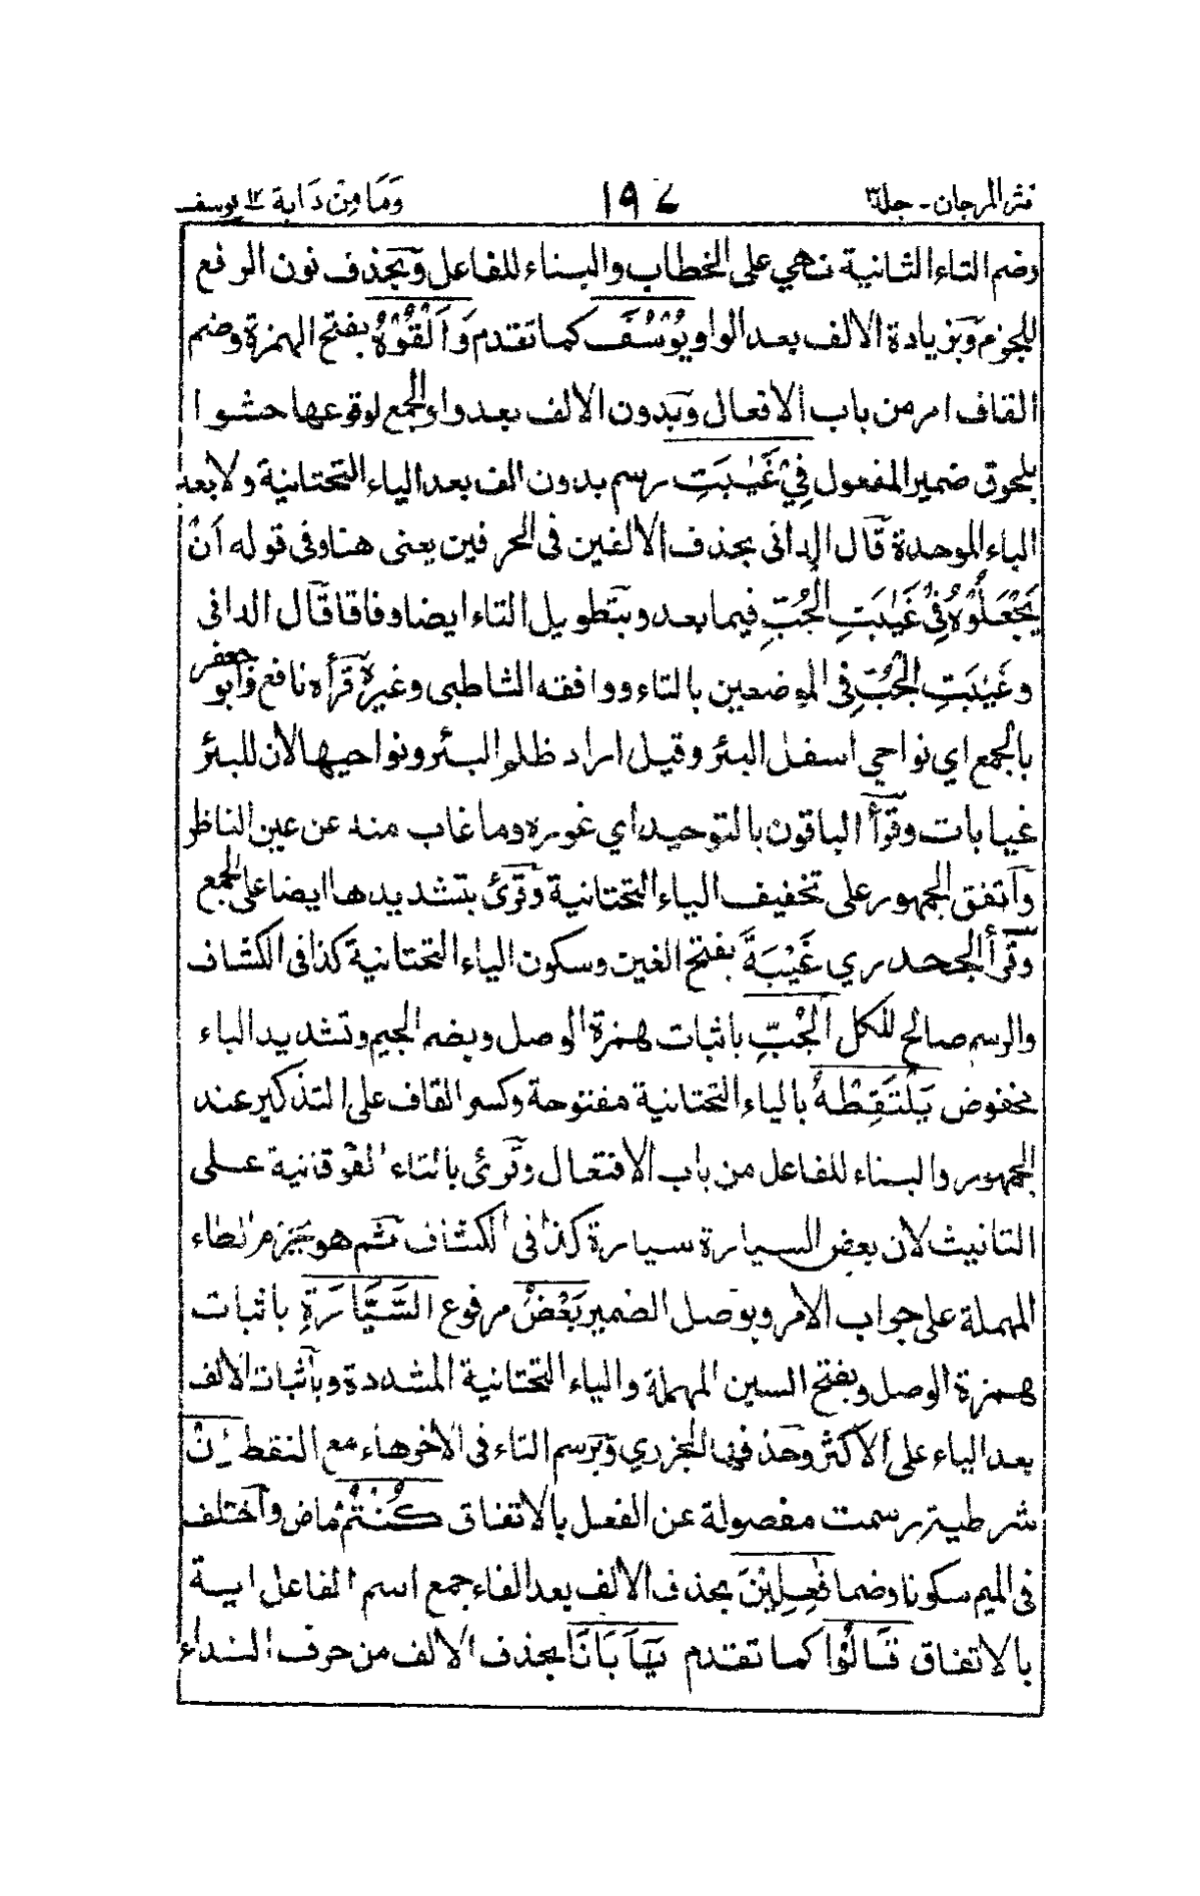 نثر المرجان - جلد٣ ١٩٧ وَمَا مِنْ دَابة ١٢ يوسف
وضم التاء الثانية نهي على الخطاب والبناء للفاعل وبحذف نون الرفع
للجزم وبزيادة الالف بعد الواو يُوْسُفَ كما تقدم وَاَلْقُوْهُ بفتح الهمزة وضم
القاف امر من باب الافعال وبدون الالف بعد واو الجمع لوقوعها حشوا
بلحوق ضمير المفعول فِيْ غَيٰبَتِ رسم بدون الف بعد الياء التحتانية ولا بعد
الباء الموحدة قال الداني بحذف الالفين في الحرفين يعني هنا وفي قوله اَنْ
يَجْعَلُوْهُ فِيْ غَيٰبَتِ الْجُبِّ فيما بعد وبتطويل التاء ايضا وفاقا قال الداني
وغَيٰبَتِ الْجُبِّ في الموضعين بالتاء ووافقه الشاطبي وغيره قرأه نافع وابو جعفر
بالجمع اي نواحي اسفل البئر وقيل اراد ظلم البئر ونواحيها لان للبئر
غيابات وقرأ الباقون بالتوحيد اي غوره وما غاب منه عن عين الناظر
واتفق الجمهور على تخفيف الياء التحتانية وقرئ بتشديدها ايضا على الجمع
وقرأ الجحدري غَيْبَةَ بفتح الغين وسكون الياء التحتانية كذا في الكشاف
والرسم صالح للكل الْجُبِّ باثبات همزة الوصل وبضم الجيم وتشديد الباء
مخفوض يَلْتَقِطْهُ بالياء التحتانية مفتوحة وكسر القاف على التذكير عند
الجمهور والبناء للفاعل من باب الافتعال وقرئ بالتاء الفوقانية على
التانيث لان بعض السيارة سيارة كذا في الكشاف ثم هو بجزم الطاء
المهملة على جواب الامر وبوصل الضمير بَعْضُ مرفوع السَّيَّارَةِ باثبات
همزة الوصل وبفتح السين المهملة والياء التحتانية المشددة وباثبات الالف
بعد الياء على الاكثر وحذفها الجزري وبرسم التاء في الاخر هاء مع النقط اِنْ
شرطية رسمت مفصولة عن الفعل بالاتفاق كُنْتُمْ ماض واختلف
في الميم سكونا وضما فٰعِلِيْنَ بحذف الالف بعد الفاء جمع اسم الفاعل اية
بالاتفاق قَالُوْا كما تقدم يٰٓاَبَانَا بحذف الالف من حرف النداء